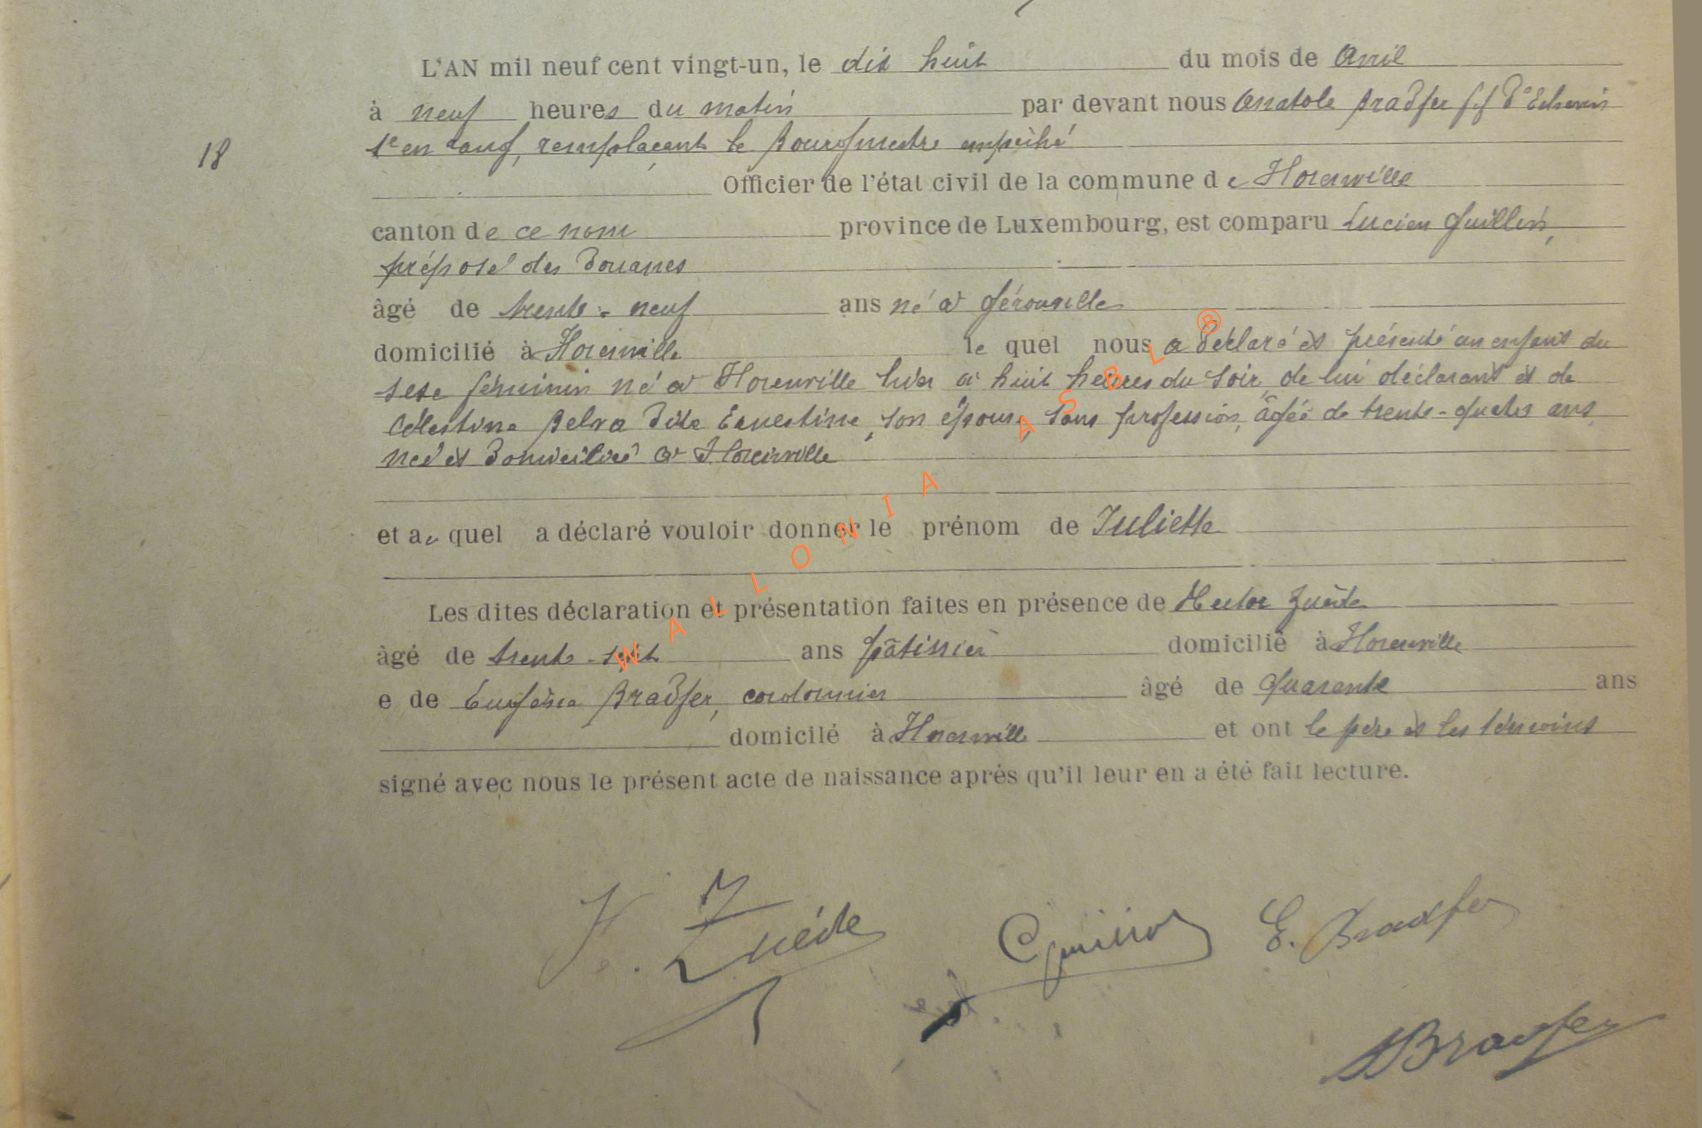 L'AN mil neuf cent vingt-un, le dix huit du mois de Avril
à neuf heures du matin par devant nous Anatole Bradfer f.f. d'Echevin
18
1er en rang, remplaçant le Bourgmestre empêché
Officier de l'état civil de la commune de Florenville
canton de ce nom province de Luxembourg, est comparu Lucien Guillin,
préposé des Douanes
âgé de trente-neuf ans né à Gérouville
domicilié à Florenville le quel nous a déclaré et présenté un enfant du
sexe féminin né à Florenville hier à huit heures du soir de lui déclarant et de
Célestine Belva dite Ernestine, son épouse, sans profession, âgée de trente-quatre ans
née et domiciliée à Florenville
et au quel a déclaré vouloir donner le prénom de Juliette
Les dites déclaration et présentation faites en présence de Hector Zuède
âgé de trente-sept ans pâtissier domicilié à Florenville
e de Eugène Bradfer, cordonnier âgé de quarante ans
domicilé à Florenville et ont le père et les témoins
signé avec nous le présent acte de naissance après qu'il leur en a été fait lecture.
H. Zuède E. Bradfer
ABradfer
WALLONIA ASBL ®